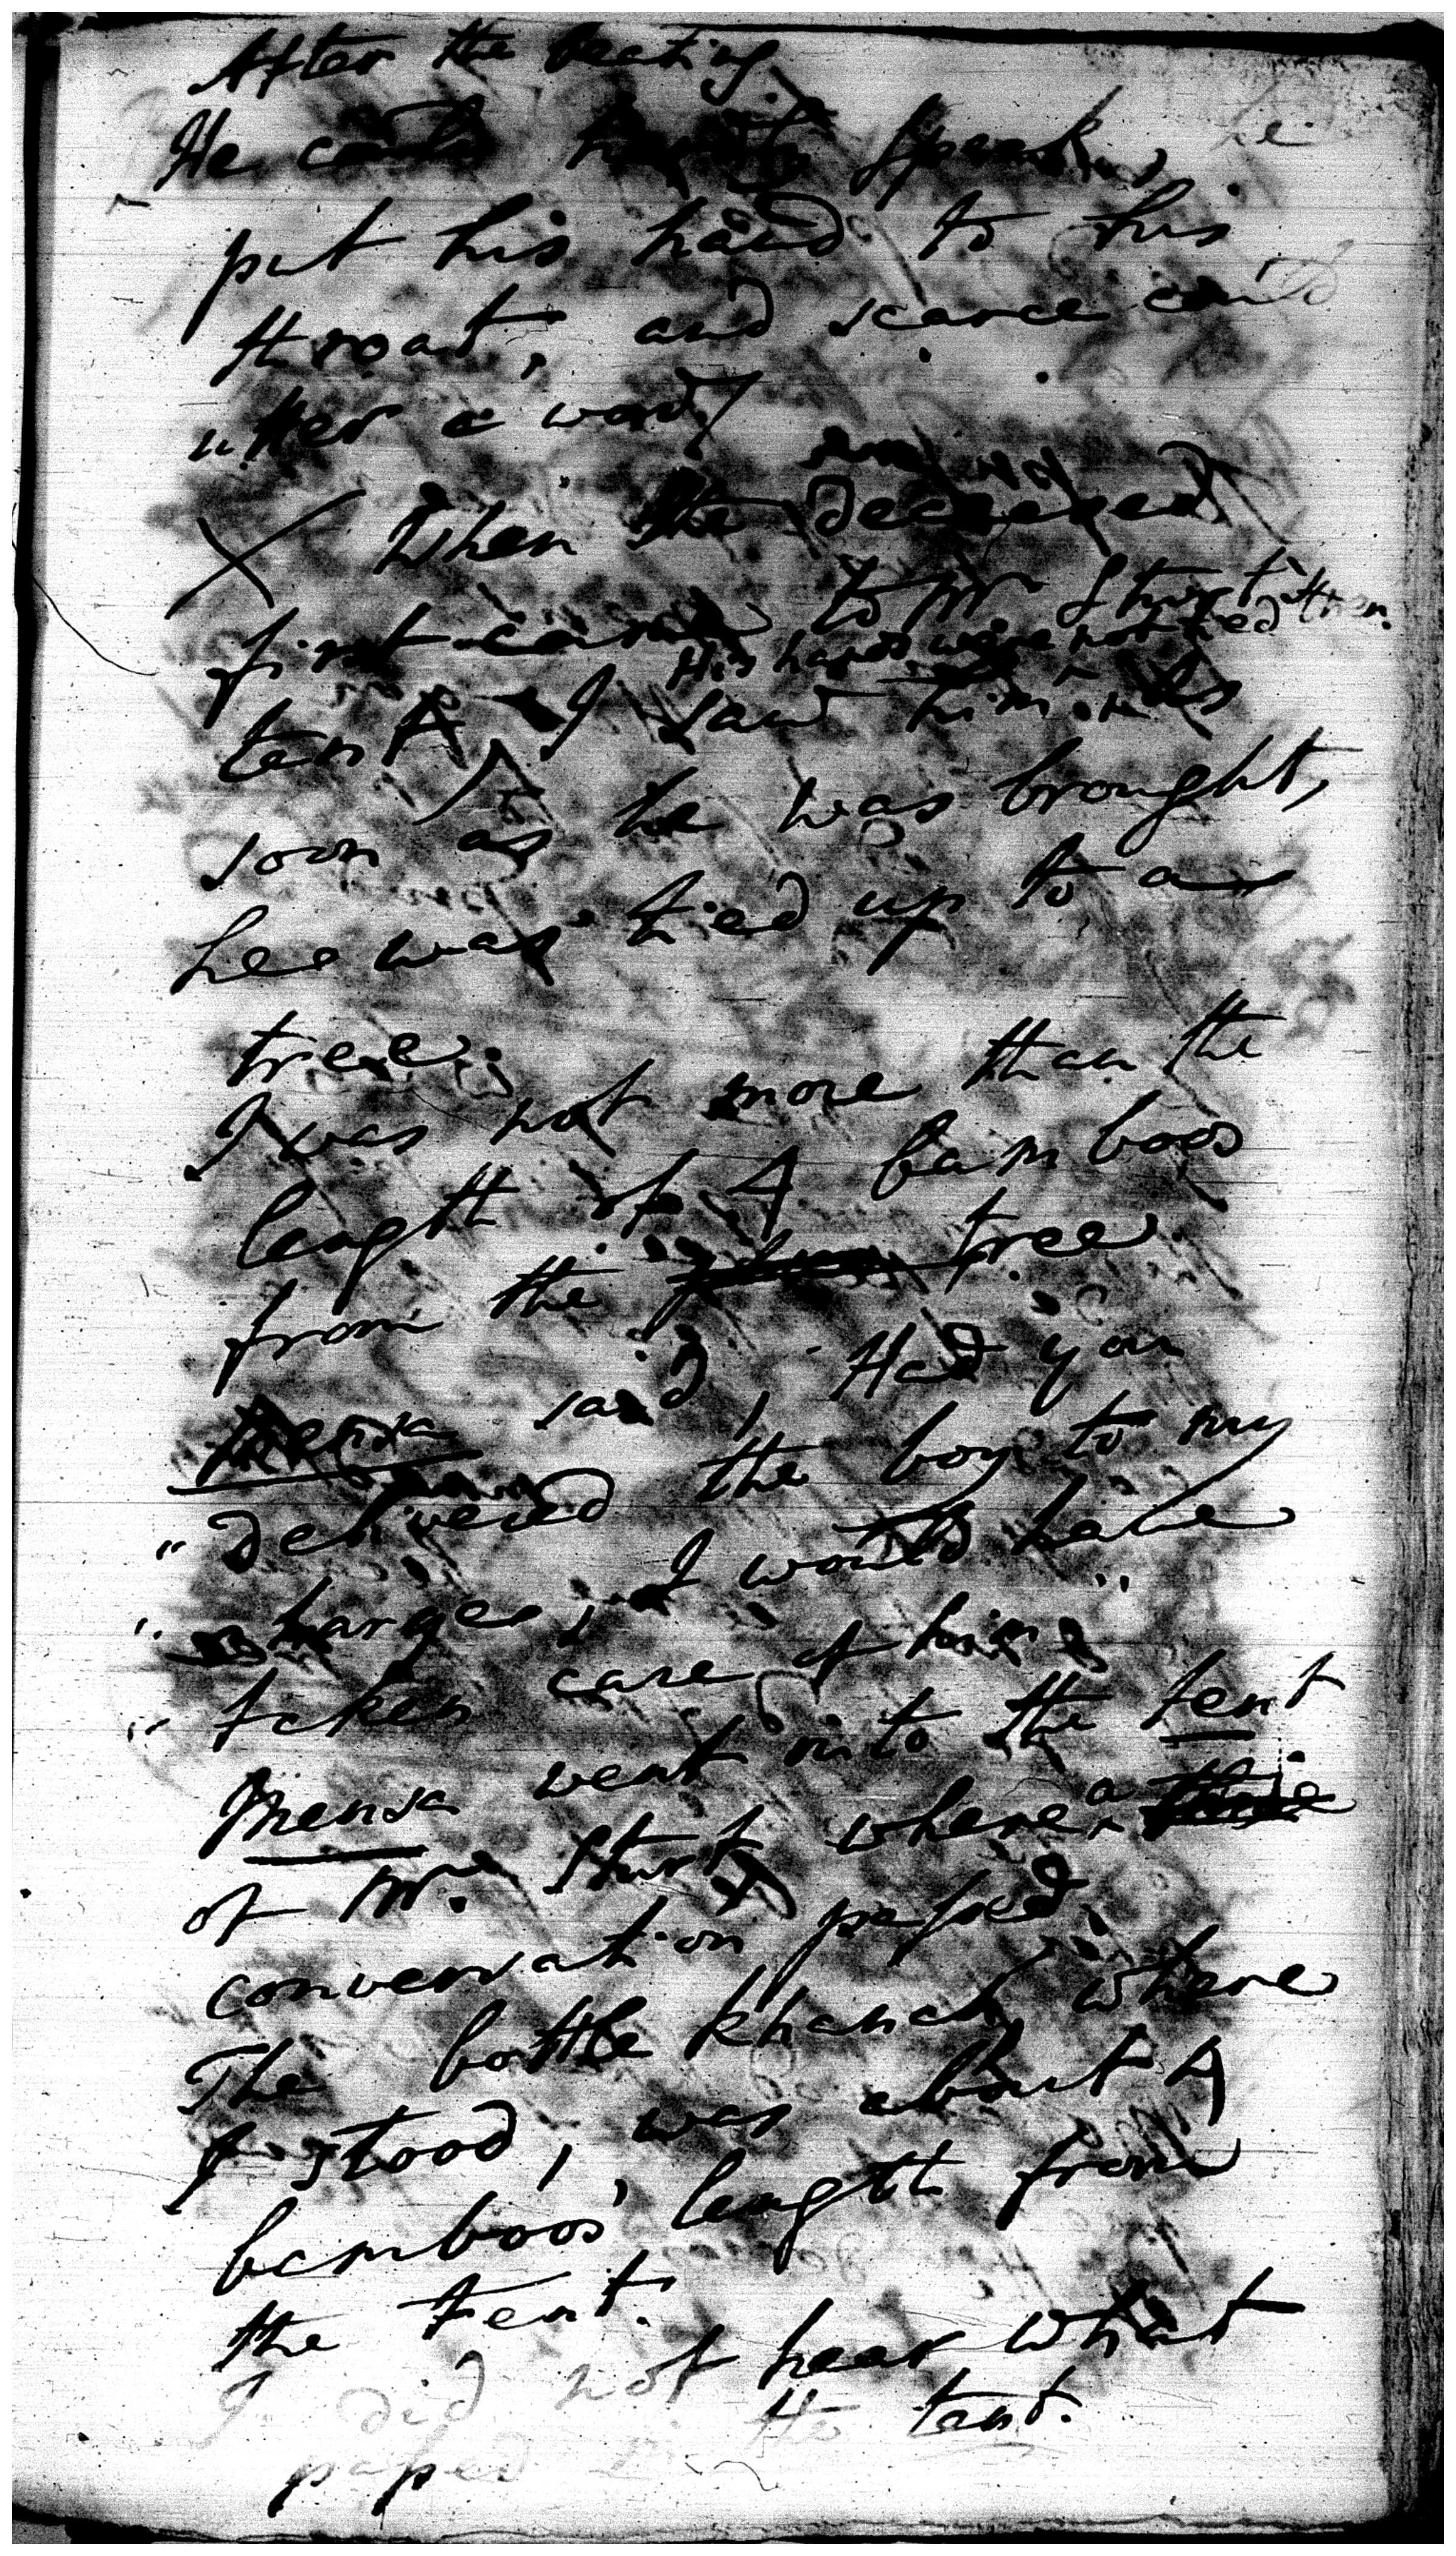 After the beating
He could hardly speak, he
put his hand to his
throat, and scarce could
utter a word/
X When the deceased
first came to Mr Sturt
His hands were not tied then.
tent, I saw him. As
soon as he was brought,
hee was tied up to a
tree.
I was not more than the
length of 4 bamboos
from the tree
Mensa said, Had you
" delivered the boy to my
" charge, I would have
" taken care of him"
Mensa went into the tent
of Mr. Sturt where a
conversation passed.
The bottle khanah, where
I stood, was about 4
bamboos' length from
the tent.
I did not hear what
passed in the tent.